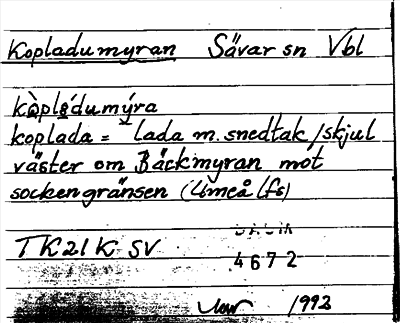 Kopladumyran Sävar sn Vbl
kòpladumýra
koplada = lada m. snedtak/skjul
väster om Bäckmyran mot
sockengränsen (Umeå lfs)
TK21K SV
4672
1992